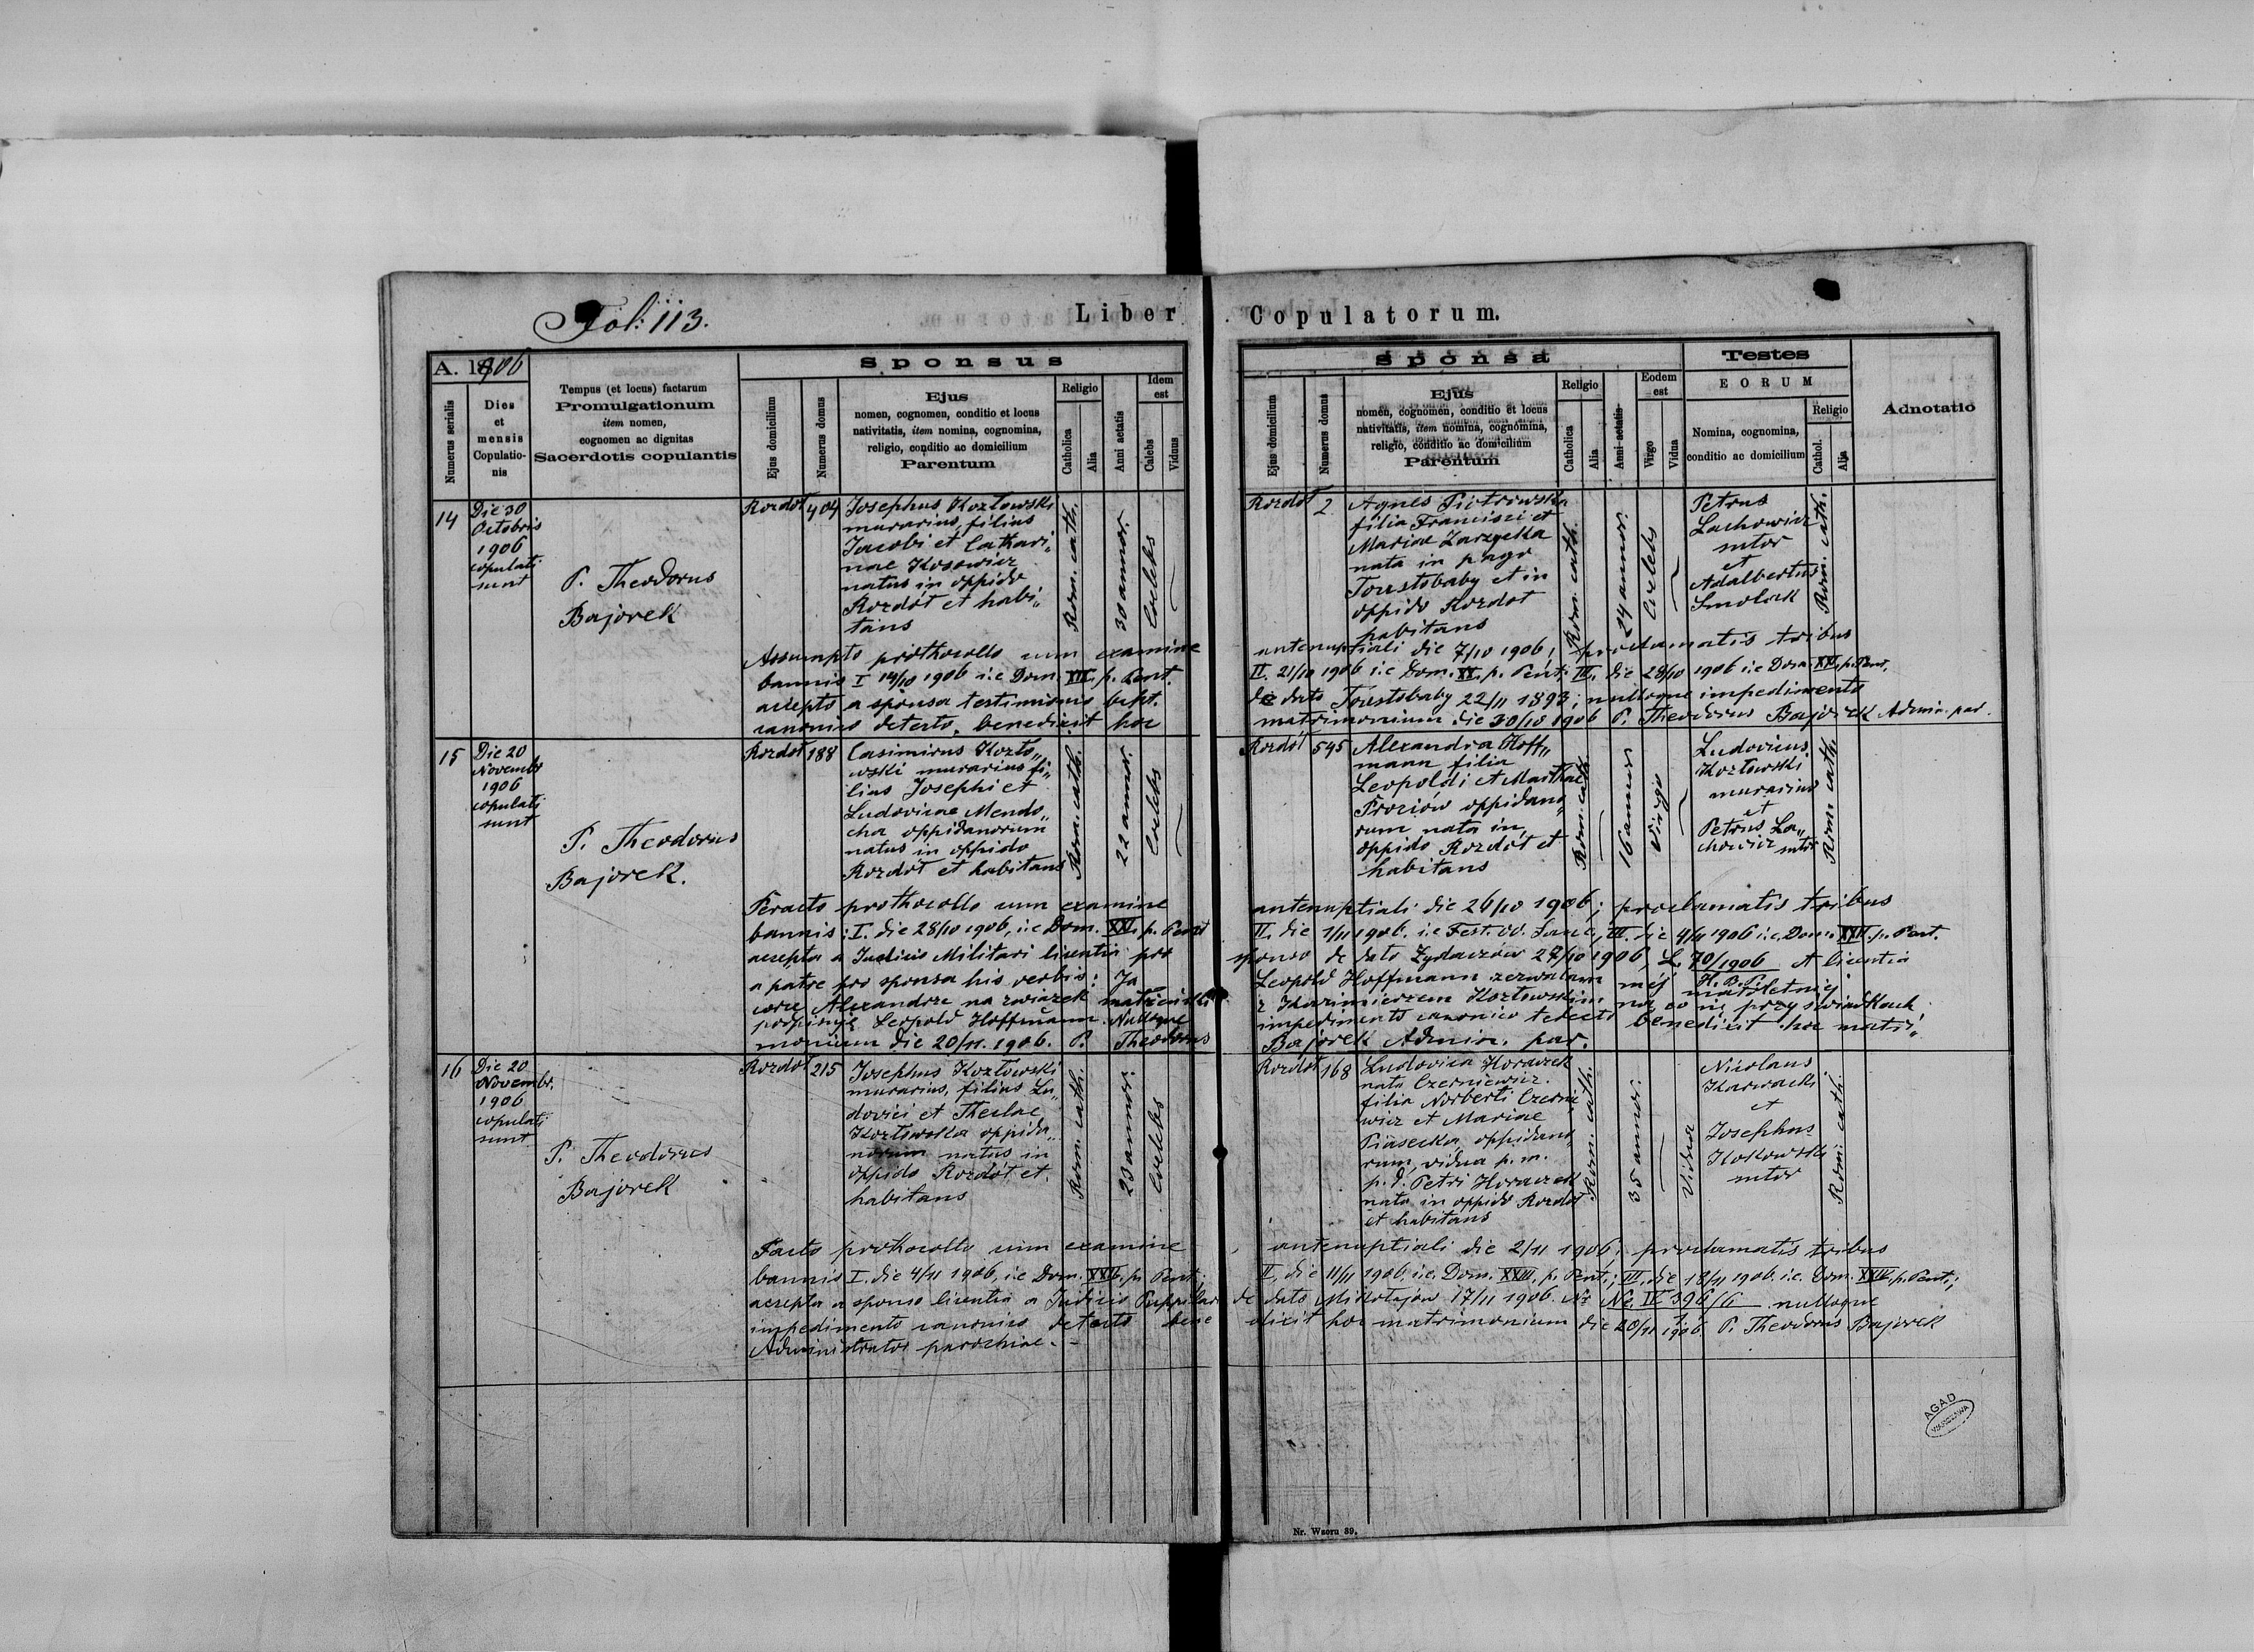 Fol: 113.
Liber Copulatorum.
A. 1906
Numerus serialis
Dies
et
mensis
Copulatio-
nis
Tempus (et locus) factarum
Promulgationum
item nomen,
cognomen ac dignitas
Sacerdotis copulantis
Sponsus
Ejus domicilium
Numerus domus
Ejus
nomen, cognomen, conditio et locus
nativitatis, item nomina, cognomina,
religio, conditio ac domicilium
Parentum
Religio
Catholica
Alia
Anni aetatis
Idem
est
Caelebs
Viduus
Sponsa
Ejus domicilium
Numerus domus
Ejus
nomen, cognomen, conditio et locus
nativitatis, item nomina, cognomina,
religio, conditio ac domicilium
Parentum
Religio
Catholica
Alia
Anni aetatis
Eodem
est
Virgo
Vidua
Testes
EORUM
Nomina, cognomina,
conditio ac domicilium
Religio
Cathol.
Alia
Adnotatio
14
Die 30
Octobris
1906
copulati
sunt
P. Theodorus
Bajorek
Rozdół
404
Josephus Kozłowski
murarius, filius
Jacobi et Cathari„
nae Kosowicz
natus in oppido
Rozdół et habi„
tans
Rom. cath.
30 annor.
Coelebs
Rozdół
2
Agnes Piotrowska
filia Francisci et
Mariae Zarzycka
nata in pago
Toustobaby et in
oppido Rozdół
habitans
Rom. cath.
24 annor.
Coelebs
Petrus
Lachowicz
sutor
et
Adalbertus
Smolak
Rom. cath.
Assumpto prothocollo cum examine antenuptiali die 7/10 1906; proclamatis tribus
bannis I 14/10 1906 i.e Dom. XIX. p. Pent. II. 21/10 1906 i.e Dom. XX. p. Pent; III. die 28/10 1906 i.e Dom. XXI. p. Pent.
accepto a sponsa testimonio bapt. de dato Toustobaby 22/11 1893; nulloque impedimento
canonico detecto, benedixit hoc matrimonium die 30/10 1906 P. Theodorus Bajorek Admin. par.
15
Die 20
Novembr
1906
copulati
sunt
P. Theodorus
Bajorek.
Rozdół
188
Casimirus Kozło„
wski murarius fi„
lius Josephi et
Ludovicae Mendo„
cha oppidanorum
natus in oppido
Rozdół et habitans
Rom. cath.
22 annor.
Coelebs
Rozdół
545
Alexandra Hoff„
mann filia
Leopoldi et Marthae
Prociów oppidano„
rum nata in
oppido Rozdół et
habitans
Rom. cath
16 annor
Virgo
Ludovicus
Kozłowski
murarius
et
Petrus La„
chowicz sutor
Rom. cath.
Peracto prothocollo cum examine antenuptiali die 26/10 1906; proclamatis tribus
bannis: I. die 28/10 1906, i.e Dom. XXI. p. Pent II. die 1/11 1906. i.e Fest. OO. Sanc, III. die 4/11 1906 i.e, Dom. XXII. p. Pent.
accepta a Iudicio Militari licentia pro sponso de dato Zydaczów 27/10 1906, L. 70/1906 et licentia
H. B. P.
a patre pro sponsa his verbis: Ja Leopold Hoffmann zezwalam mej małoletniej
córce Alexandrze na związek małżeński z Kazimierzem Kozłowskim na co się przy świadkach
podpisuję Leopold Hoffmann. Nulloque impedimento canonico tedecto benedixit hoc matri„
monium die 20/11. 1906. P. Theodorus Bajorek Admin. par.
16
Die 20
Novembr.
1906
copulati
sunt
P. Theodorus
Bajorek
Rozdół
215
Josephus Kozłowski
murarius, filius Lu„
dovici et Theclae
Kozłowska oppida„
norum natus in
oppido Rozdół et
habitans
Rom. cath.
23 annor.
Coelebs
Rozdół
168
Ludovica Horaczek
nata Czerniewicz.
filia Norberti Czernie
wicz et Mariae
Piasecka oppidano„
rum, vidua p. m.
p. d. Petri Horaczek
nata in oppido Rozdół
et habitans
Rom. cath.
35 annor.
Vidua
Nicolaus
Karwacki
et
Josephus
Kokowski
sutor
Rom. cath.
Facto prothocollo cum examine antenuptiali die 2/11 1906; proclamatis tribus
bannis I. die 4/11 1906, i.e Dom. XXII. p. Pent.; II. die 11/11 1906. i.e. Dom. XXIII. p. Pent.; III. die 18/11 1906. i.e. Dom. XXIV. p. Pent.;
accepta a sponso licentia a Iudicio Puppilari de dato Mikołajów 17/11 1906. Nr Nc. IV. 396/6 nulloque
impedimento canonico detecto bene dixit hoc matrimonium die 20/11 1906 P. Theodorus Bajorek
Administrator parochiae.
Nr. Wzoru 39.
AGAD
WARSZAWA